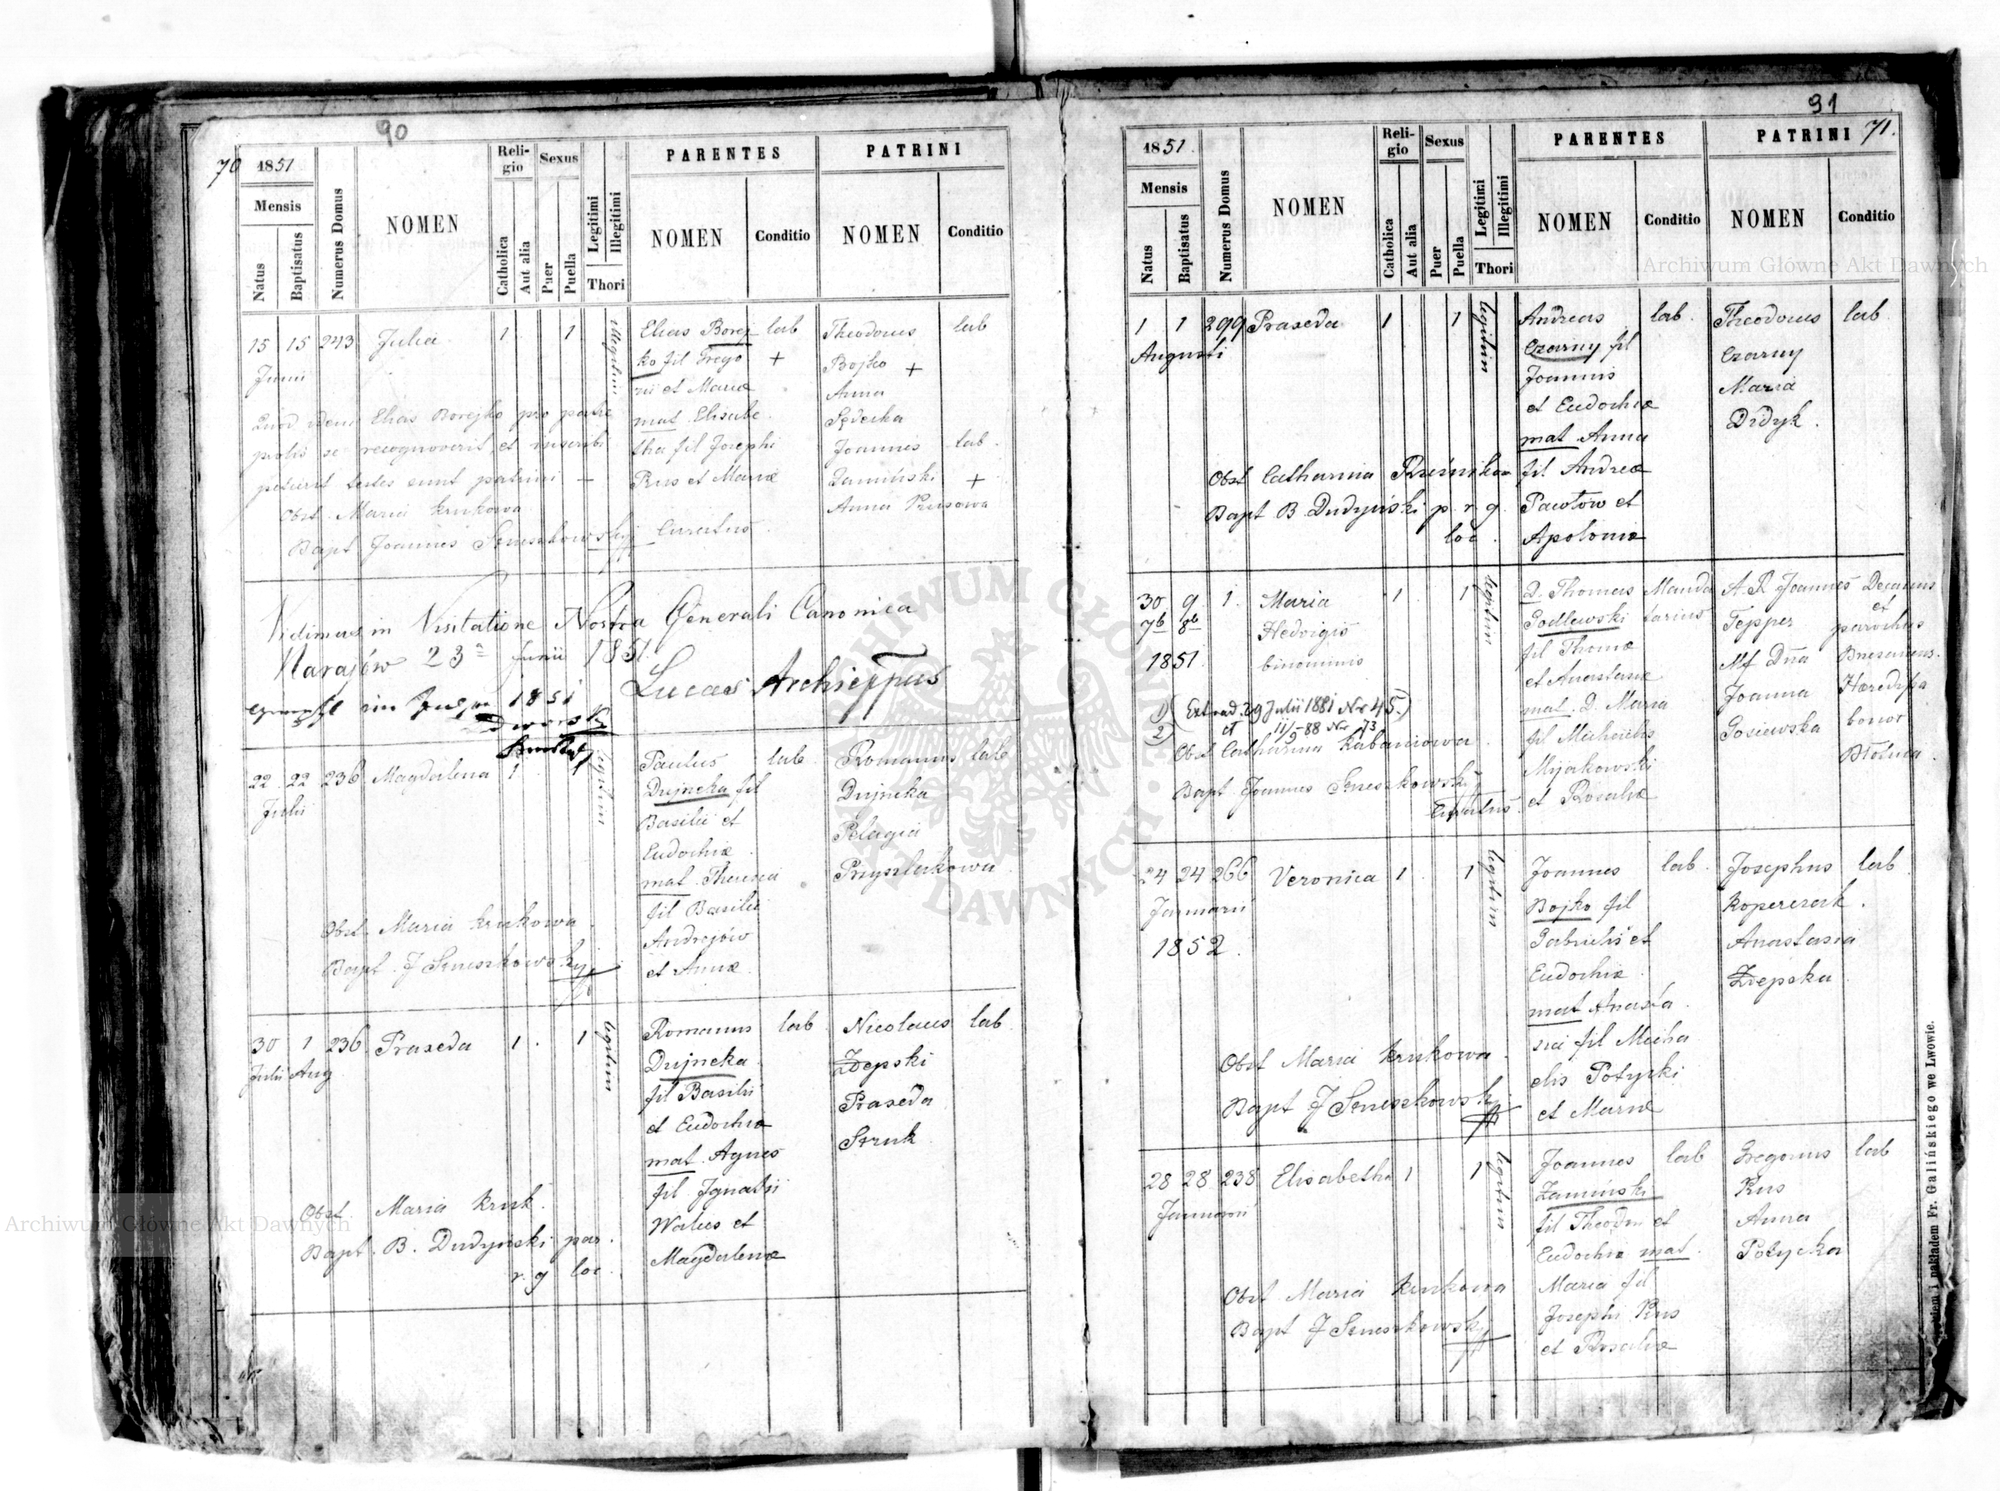 90
70
1851
Mensis
Natus
Baptisatus
Numerus Domus
NOMEN
Reli-
gio
Catholica
Aut alia
Sexus
Puer
Puella
Legitimi
Illegitimi
Thori
PARENTES
NOMEN
Conditio
PATRINI
NOMEN
Conditio
15 15 243 Julia 1 1 Illegitimi
Junii
Quod idem Elias Borejko pro patre
prolis se recognoverit et inscribi
petierit testes sunt patrini
Obst. Maria Krukowa
Bapt Joannes Curatus
Elias Borej
ko fil Grego
rii et Mariæ
mat. Elisabe
tha fil Josephi
Rus et Mariæ
lab
+
Theodorus lab
Bojko +
Anna
Joannes lab.
Zamiński +
Anna Rusowa
Vidimus in Visitatione Nostra Generali Canonica
Narajów 23 Junii 1851.
Lucas Archieppus
1851
22 22 236 Magdalena 1 1 legitim
Julii
Obst. Maria Krukowa
Bapt. J
Paulus lab
Dujneka fil
Basilii et
Eudochiæ
mat. Theresia
fil Basilii
Andrejów
et Annæ
Romanus lab
Dujneka
Pelagia
Przyszlakowa
30 1 236 Praxeda 1 1 legitim
Julii Aug
Obst Maria Kruk.
Bapt. B. Dudyński par.
r. g loc.
Romanus lab
Dujneka
fil Basilii
et Eudochiæ
mat. Agnes
fil Ignatii
Walus et
Magdalenæ
Nicolaus lab.
Zdepski
Praxeda
Struk
91
71.
1851.
Mensis
Natus
Baptisatus
Numerus Domus
NOMEN
Reli-
gio
Catholica
Aut alia
Sexus
Puer
Puella
Legitimi
Illegitimi
Thori
PARENTES
NOMEN
Conditio
PATRINI
NOMEN
Conditio
1 1 299 Praxeda 1 1 legitim
Augusti
Obst Catharina
Bapt B. Dudyński p. r. g.
loc.
Andreas lab.
Czarny fil
Joannis
et Eudochiæ
mat Anna
fil Andreæ
Pawłów et
Apoloniæ
Theodorus lab.
Czarny
Maria
Didyk.
30 9 1. Maria 1 1 legitim
7b 8b Hedvigis
1851. binominis
1) Extrad. 29 Julii 1881 Nr 45.
2) et 11/5 88 Nr 73
Obst Catharina Kabaniowa.
Bapt. Joannes
Curatus.
D. Thomas Manda
Godlewski tarius
fil Thomæ
et Anastasiæ
mat. D. Maria
fil Michaelis
Mijakowski
et Rosaliæ
A. R Joannes Decanus
Tepper et parochus
Mf Dña
Joanna
Gosiewska bonor
24 24 266 Veronica 1 1 legitim
Januarii
1852.
Obst Maria Krukowa.
Bapt J
Joannes lab.
Bojko fil
Gabrielis et
Eudochiæ.
mat Anasta
sia fil Micha
elis Potycki
et Mariæ
Josephus lab
Koperczak.
Anastasia
Zdepska
28 28 238 Elisabetha 1 1 legitim
Januarii
Obst Maria Krukowa
Bapt J
Joannes lab
Zamiński
fil Theodori et
Eudochiæ mat.
Maria fil
Josephi Rus
et Rosaliæ
Gregorius lab
Rus
Anna
Potycka
nakładem Fr. Galińskiego we Lwowie.
ARCHIWUM GŁÓWNE AKT DAWNYCH
Archiwum Główne Akt Dawnych
Archiwum Główne Akt Dawnych